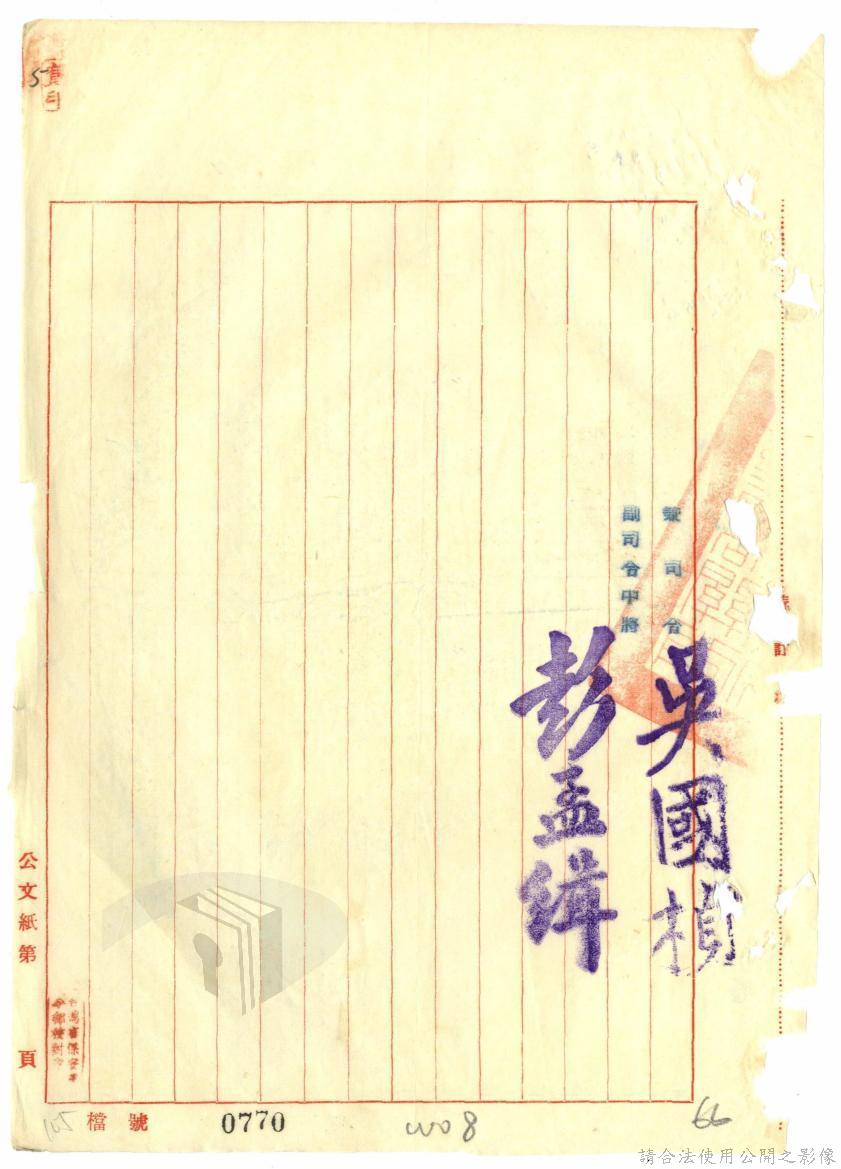 兼司令
吳國楨
副司令中將
彭孟緝
公文紙第 頁
檔號
0770
105
008
66
請合法使用公開之影像